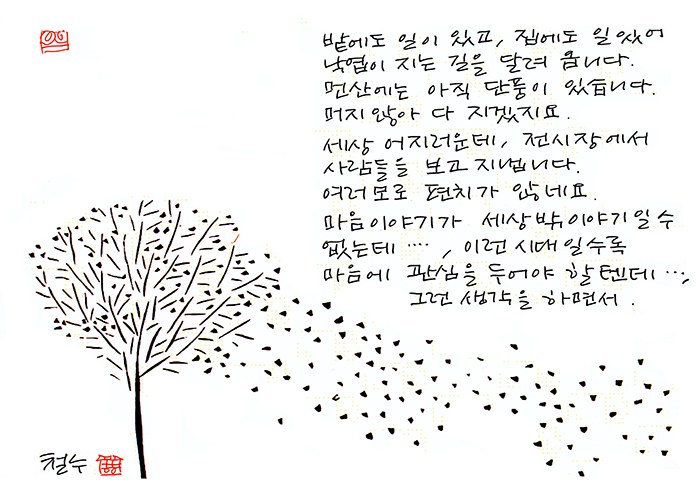 밭에도 일이 있고, 집에도 일 있어
낙엽이 지는 길을 달려 옵니다.
먼산에는 아직 단풍이 있습니다.
머지않아 다 지겠지요.
세상 어지러운데, 전시장에서
사람들을 보고 지냅니다.
여러모로 편치가 않네요.
마음이야기가 세상밖이야기일 수
없는데 … , 이런 시대일수록
마음에 관심을 두어야 할텐데 …,
그런 생각을 하면서 .
철수